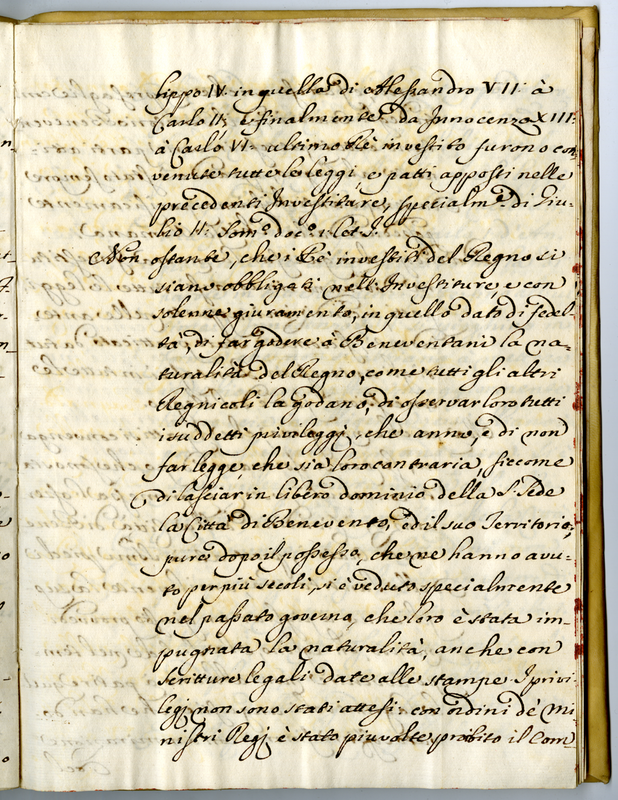 lippo IV. in quella di Alessandro VII. à
Carlo II; e finalmente da Innocenzo XIII:
à Carlo VI. ultimo Rè investito furono con,
venute tutte le leggi, e patti apposti nelle
precedenti Investiture, specialm.e di Giu-
lio II: Som.o doc.o 1. let. J.
Non ostante, che i Rè investiti del Regno si
siano obbligati nell'Investiture e con
solenne giuramento, in quello dato di fedel-
tà, di far godere à Beneventani la na=
turalità del Regno, come tutti gli altri
Regnicoli la godano, di osservar loro tutti
i suddetti privileggi, che anno, e di non
far legge, che sia loro contraria, siccome
di lasciar in libero dominio della S. Sede
la Città di Benevento, ed il suo Territorio;
pure dopo il possesso, che ne hanno avu-
to per più secoli, si è veduto specialmente
nel passato governo, che loro è stata im-
pugnata la naturalità, anche con
scritture legali date alle stampe. I privi-
legj non sono stati attesi: con ordini de' Mi-
nistri Regj è stato più volte proibito il Com